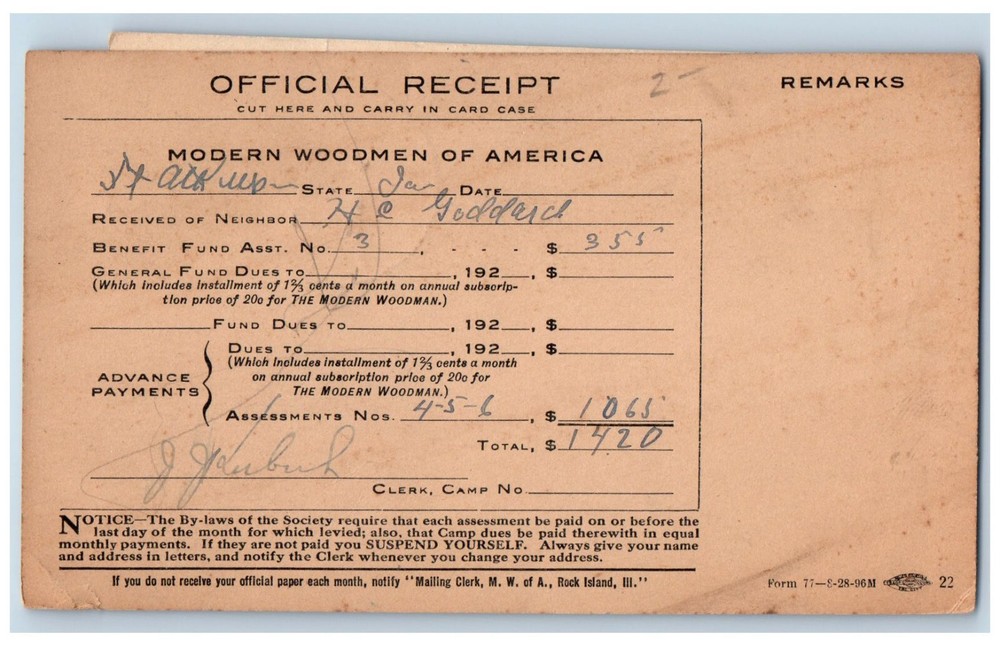 OFFICIAL RECEIPT
CUT HERE AND CARRY IN CARD CASE
2-
REMARKS
MODERN WOODMEN OF AMERICA
Ft Atkinson STATE Ia DATE
RECEIVED OF NEIGHBOR H C Goddard
BENEFIT FUND ASST. NO. 3, - - - $ 355
GENERAL FUND DUES TO , 192 , $
(Which includes installment of 1⅔ cents a month on annual subscrip-
tion price of 20c for THE MODERN WOODMAN.)
FUND DUES TO , 192 , $
ADVANCE PAYMENTS
DUES TO , 192 , $
(Which includes installment of 1⅔ cents a month
on annual subscription price of 20c for
THE MODERN WOODMAN.)
ASSESSMENTS NOS. 4-5-6, $ 1065
TOTAL, $ 1420
CLERK, CAMP NO.
NOTICE—The By-laws of the Society require that each assessment be paid on or before the
last day of the month for which levied; also, that Camp dues be paid therewith in equal
monthly payments. If they are not paid you SUSPEND YOURSELF. Always give your name
and address in letters, and notify the Clerk whenever you change your address.
If you do not receive your official paper each month, notify "Mailing Clerk, M. W. of A., Rock Island, Ill."
Form 77—8-28-96M 22